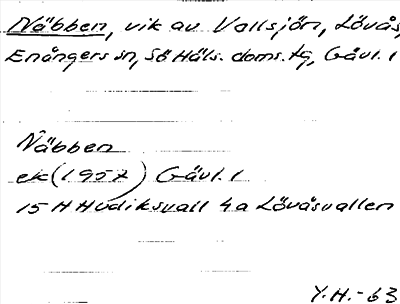 Näbben, vik av Vallsjön, Lövås,
Enångers sn, Sö Häls. doms. tg, Gävl. l
Näbben
ek (1957) Gävl. l
15 H Hudiksvall 4a Lövåsvallen
Y.H.-63